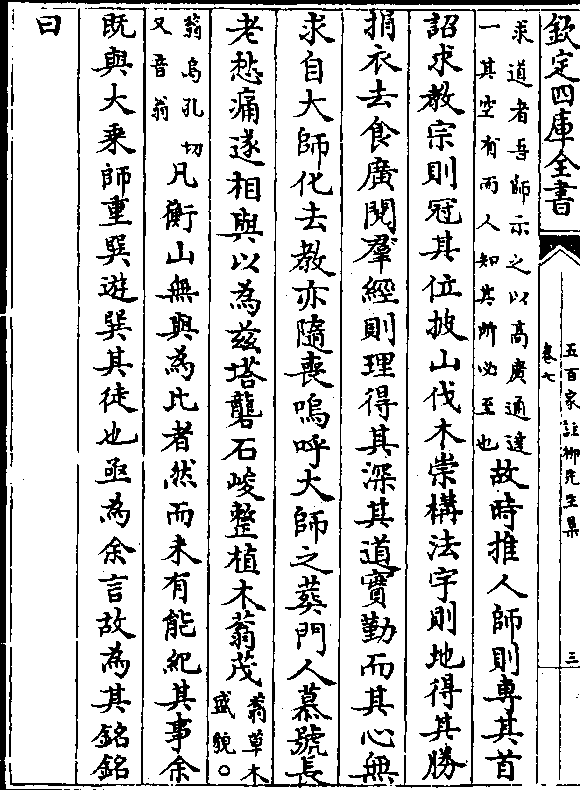 欽定四庫全書
五百家註柳先生集
卷七
三
求道者吾師示之以高廣通達
一其空有而人知其所必至也
故時推人師則專其首
詔求教宗則冠其位披山伐木崇構法宇則地得其勝
捐衣去食廣閱羣經則理得其深其道寳勤而其心無
求自大師化去教亦隨喪嗚呼大師之葬門人慕號長
老愁痛遂相與以為兹塔礱石峻整植木蓊茂
蓊草木
盛貌○
蓊烏孔切
又音翁
凡衡山無與為比者然而未有能紀其事余
既與大乘師重巽遊巽其徒也亟為余言故為其銘銘
曰